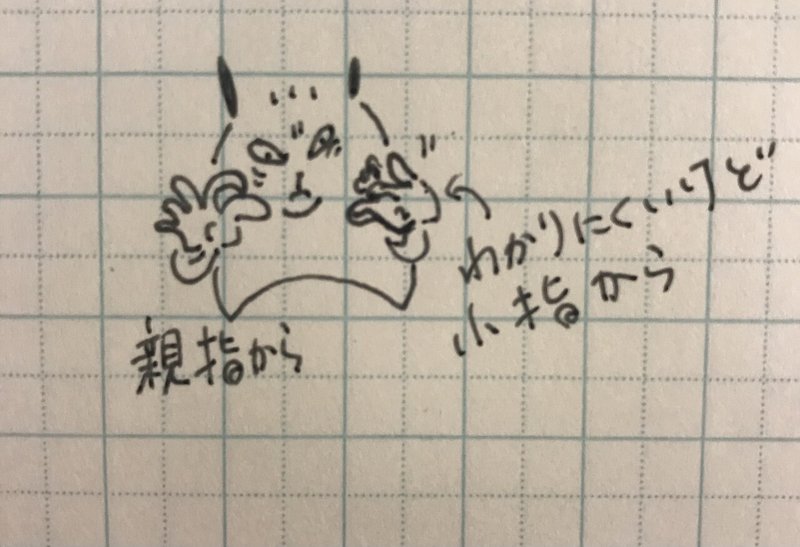 わかりにくいけど
小指から
親指から